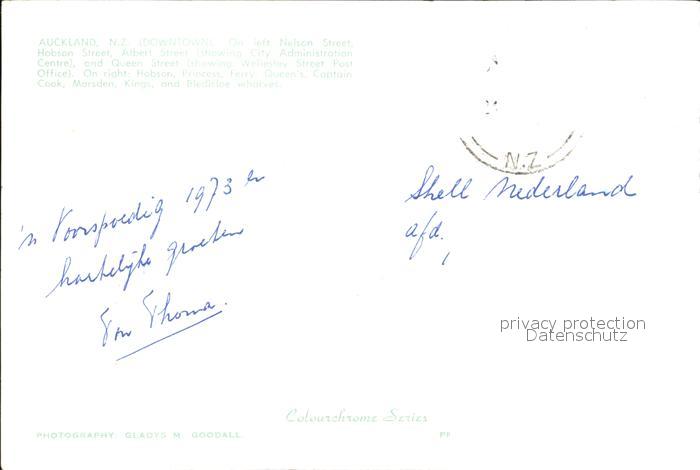 AUCKLAND, N.Z. (DOWNTOWN). On left Nelson Street,
Hobson Street, Albert Street (showing City Administration
Centre), and Queen Street (showing Wellesley Street Post
Office). On right: Hobson, Princess, Ferry, Queen's, Captain
Cook, Marsden, Kings, and Bledisloe wharves.
N.Z.
'n Voorspoedig 1973 en
hartelijke groeten
Ton Thoma.
Shell Nederland
afd.
privacy protection
Datenschutz
Colourchrome Series
PHOTOGRAPHY: GLADYS M. GOODALL.